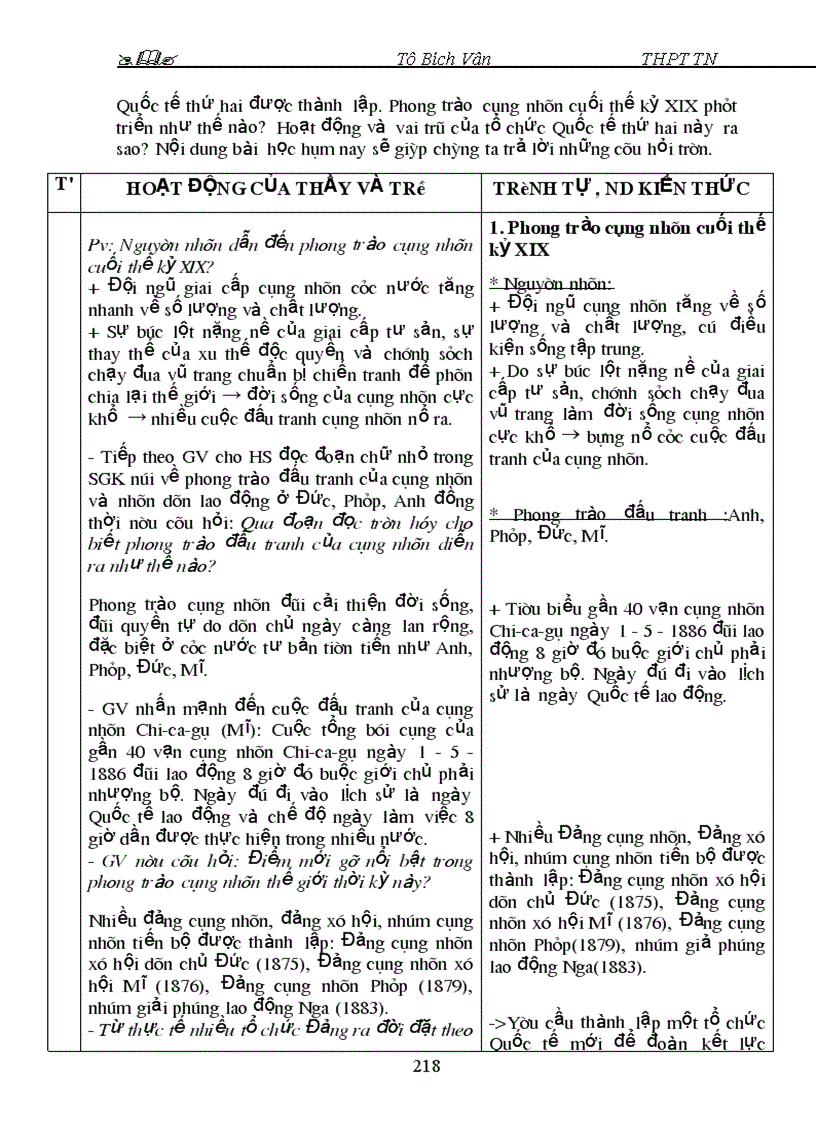 Tô Bích Vân THPT TN
Quốc tế thứ hai được thành lập. Phong trào cụng nhõn cuối thế kỷ XIX phỏt
triển như thế nào? Hoạt động và vai trũ của tổ chức Quốc tế thứ hai này ra
sao? Nội dung bài học hụm nay sẽ giỳp chỳng ta trả lời những cõu hỏi trờn.
T'
HOẠT ĐỘNG CỦA THẦY VÀ TRề
Pv: Nguyờn nhõn dẫn đến phong trào cụng nhõn
cuối thế kỷ XIX?
+ Đội ngũ giai cấp cụng nhõn cỏc nước tăng
nhanh về số lượng và chất lượng.
+ Sự búc lột nặng nề của giai cấp tư sản, sự
thay thế của xu thế độc quyền và chớnh sỏch
chạy đua vũ trang chuẩn bị chiến tranh để phõn
chia lại thế giới → đời sống của cụng nhõn cực
khổ → nhiều cuộc đấu tranh cụng nhõn nổ ra.
- Tiếp theo GV cho HS đọc đoạn chữ nhỏ trong
SGK núi về phong trào đấu tranh của cụng nhõn
và nhõn dõn lao động ở Đức, Phỏp, Anh đồng
thời nờu cõu hỏi: Qua đoạn đọc trờn hóy cho
biết phong trào đấu tranh của cụng nhõn diễn
ra như thế nào?
Phong trào cụng nhõn đũi cải thiện đời sống,
đũi quyền tự do dõn chủ ngày càng lan rộng,
đặc biệt ở cỏc nước tư bản tiờn tiến như Anh,
Phỏp, Đức, Mĩ.
- GV nhấn mạnh đến cuộc đấu tranh của cụng
nhõn Chi-ca-gụ (Mĩ): Cuộc tổng bói cụng của
gần 40 vạn cụng nhõn Chi-ca-gụ ngày 1 - 5 -
1886 đũi lao động 8 giờ đó buộc giới chủ phải
nhượng bộ. Ngày đú đi vào lịch sử là ngày
Quốc tế lao động và chế độ ngày làm việc 8
giờ dần được thực hiện trong nhiều nước.
- GV nờu cõu hỏi: Điểm mới gỡ nổi bật trong
phong trào cụng nhõn thế giới thời kỳ này?
Nhiều đảng cụng nhõn, đảng xó hội, nhúm cụng
nhõn tiến bộ được thành lập: Đảng cụng nhõn
xó hội dõn chủ Đức (1875), Đảng cụng nhõn xó
hội Mĩ (1876), Đảng cụng nhõn Phỏp (1879),
nhúm giải phúng lao động Nga (1883).
- Từ thực tế nhiều tổ chức Đảng ra đời đặt theo
TRèNH TỰ , ND KIẾN THỨC
1. Phong trào cụng nhõn cuối thế
kỷ XIX
* Nguyờn nhõn:
+ Đội ngũ cụng nhõn tăng về số
lượng và chất lượng, cú điều
kiện sống tập trung.
+ Do sự búc lột nặng nề của giai
cấp tư sản, chớnh sỏch chạy đua
vũ trang làm đời sống cụng nhõn
cực khổ → bựng nổ cỏc cuộc đấu
tranh của cụng nhõn.
* Phong trào đấu tranh :Anh,
Phỏp, Đức, Mĩ.
+ Tiờu biểu gần 40 vạn cụng nhõn
Chi-ca-gụ ngày 1 - 5 - 1886 đũi lao
động 8 giờ đó buộc giới chủ phải
nhượng bộ. Ngày đú đi vào lịch
sử là ngày Quốc tế lao động.
+ Nhiều Đảng cụng nhõn, Đảng xó
hội, nhúm cụng nhõn tiến bộ được
thành lập: Đảng cụng nhõn xó hội
dõn chủ Đức (1875), Đảng cụng
nhõn xó hội Mĩ (1876), Đảng cụng
nhõn Phỏp(1879), nhúm giả phúng
lao động Nga(1883).
->Yờu cầu thành lập một tổ chức
Quốc tế mới để đoàn kết lực
218